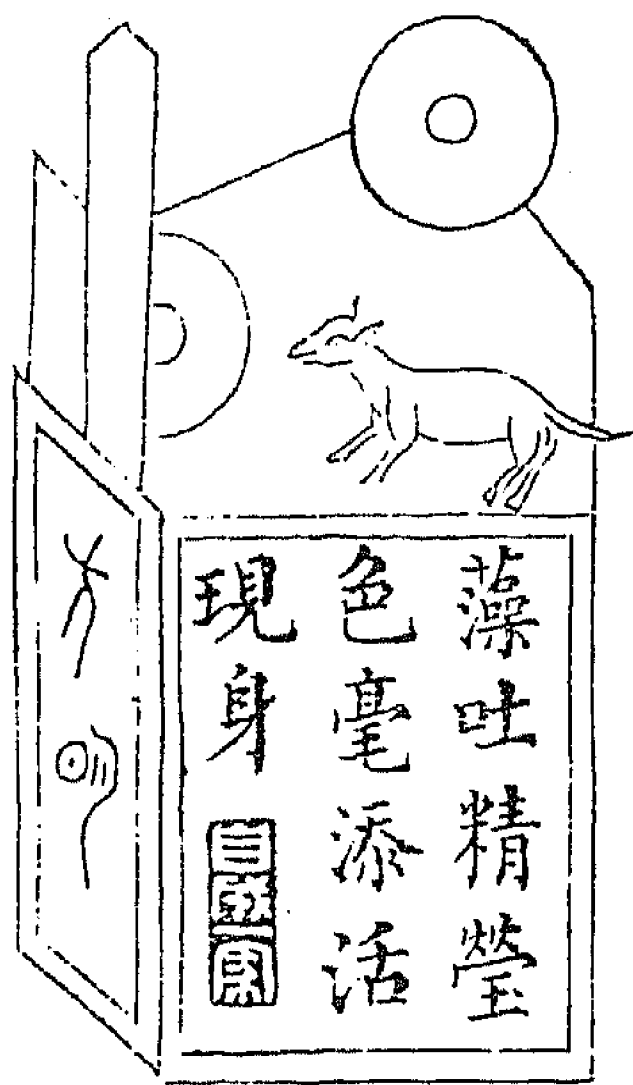 藻吐精瑩
色毫添活
現身